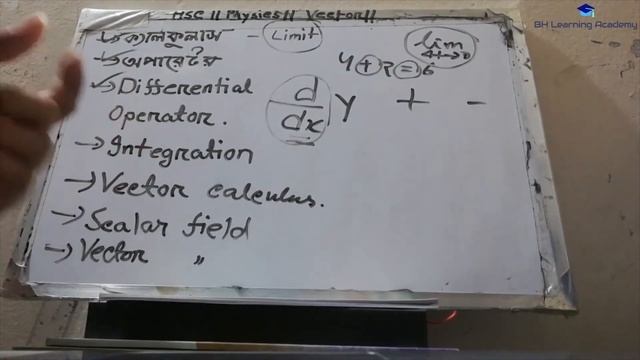 BH Learning Academy
HSC || Physics || Vector ||
→ ক্যালকুলাস - Limit
→ অপারেটর
→ Differential
Operator.
→ Integration
→ Vector calculus.
→ Scalar field
→ Vector "
lim
4 + 2 = 6
d/dx y + -